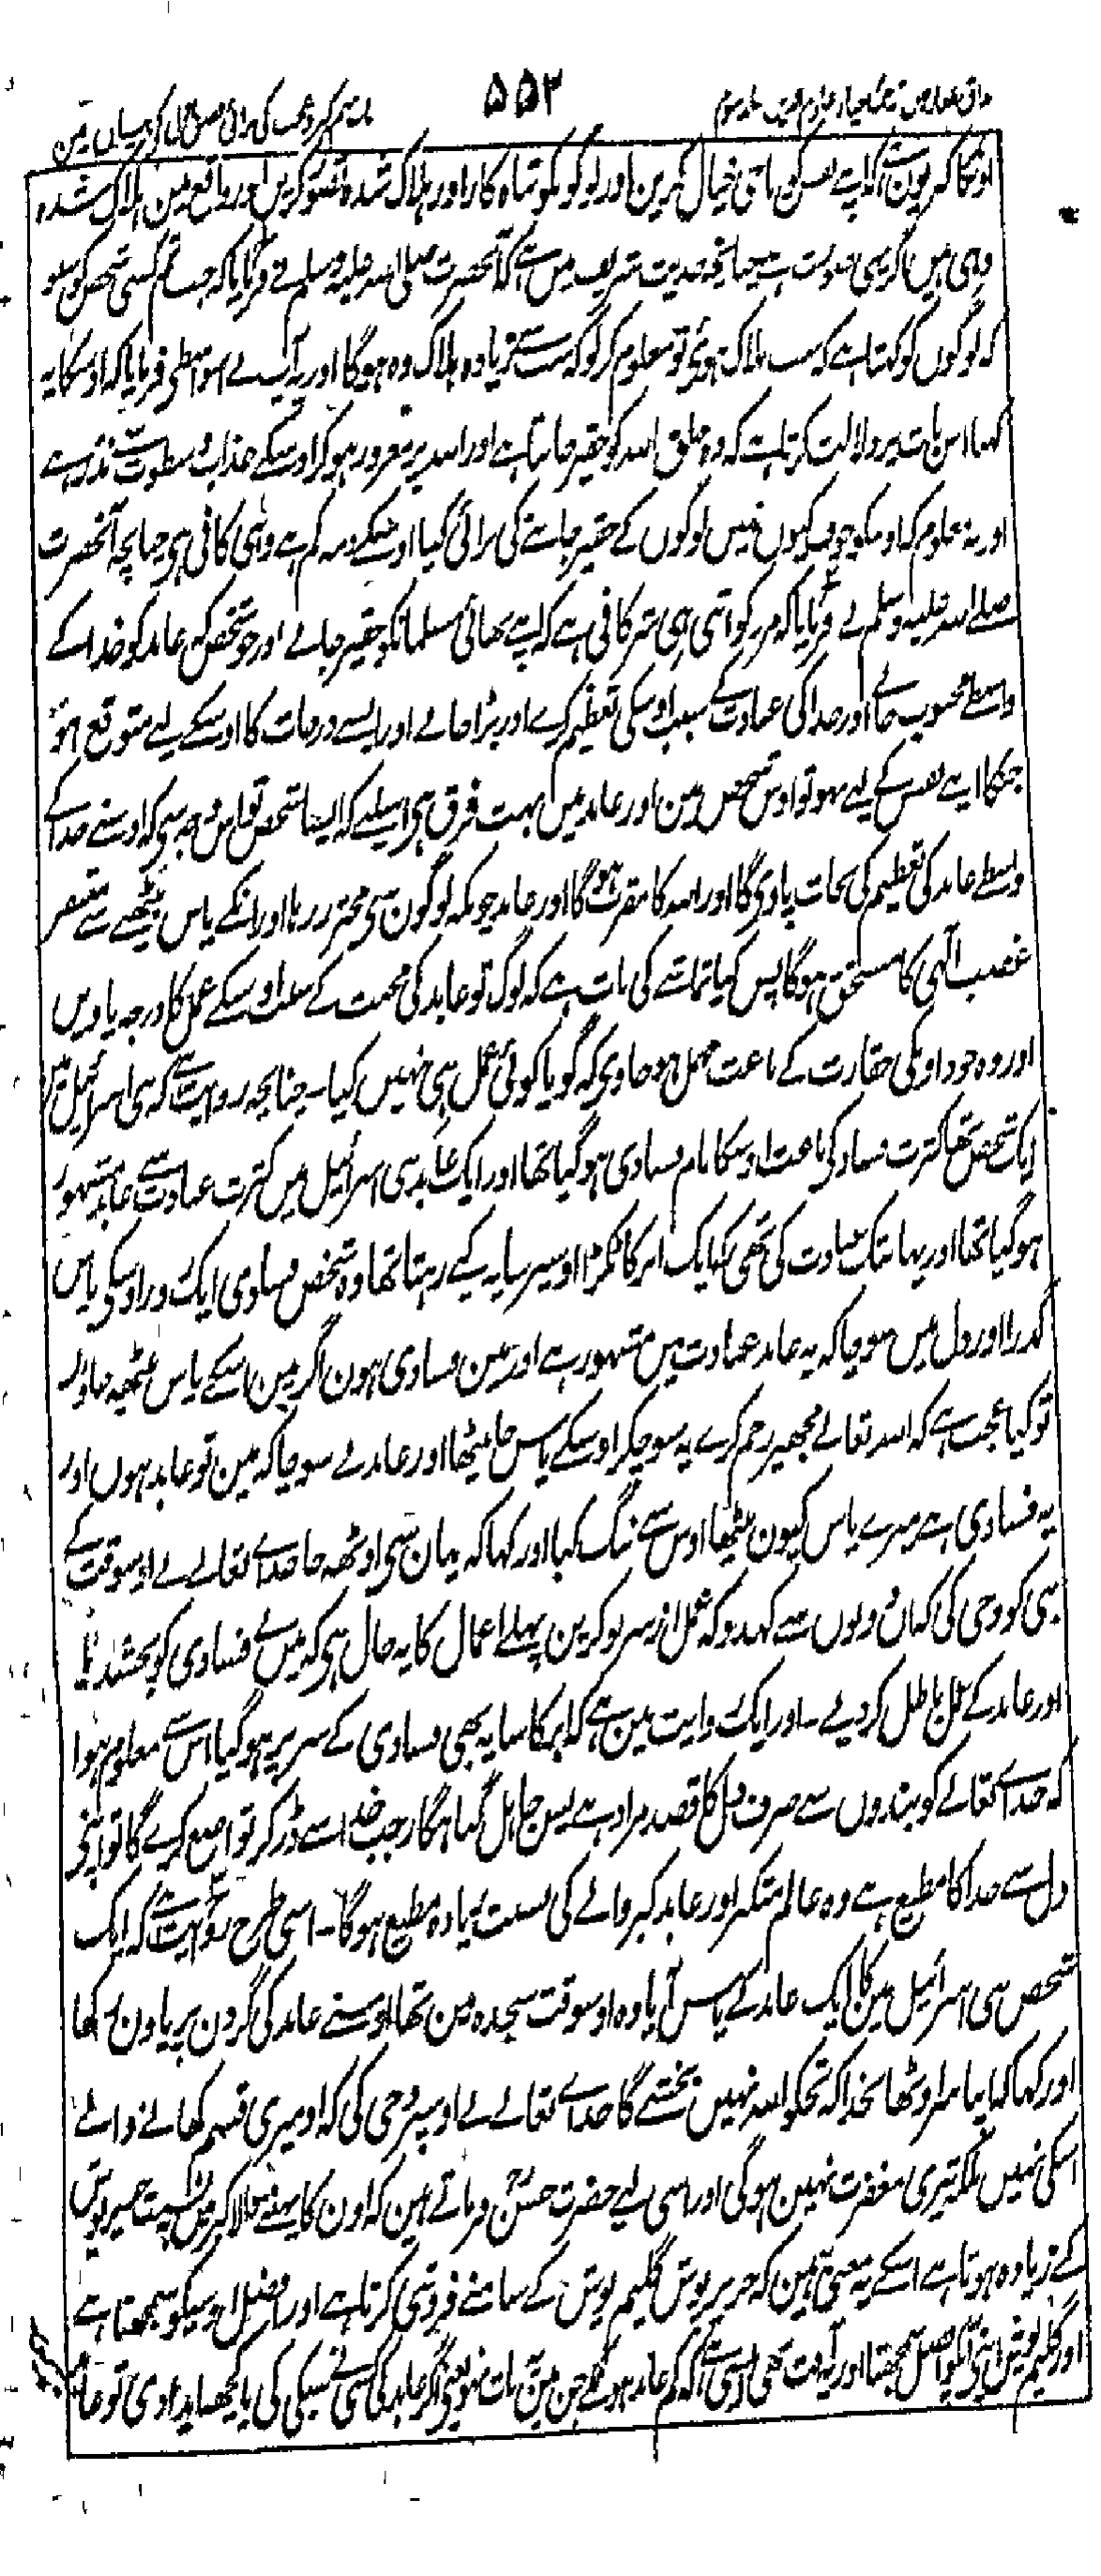 ۵۵۲
اونکا کبر یون ہے کہ اپنے نفس کو ناجی خیال کرین اور لوگوں کو تباہ کار اور ہلاک شدہ تصور کریں اور واقع مین ہلاک شدہ
وہی ہیں اگر یہی صورت ہے چنانچہ حدیث شریف میں ہے کہ آنحضرت صلی اللہ علیہ وسلم نے فرمایا کہ جب تم کسی شخص کو سنو
کہ لوگوں کو کہتا ہے کہ سب ہلاک ہوئے تو معلوم کر لو کہ سب سے زیادہ ہلاک وہ ہوگا اور یہ آپ نے اسواسطے فرمایا کہ اوسکا یہ
کہنا اس بات پر دلالت کرتا ہے کہ وہ خلق اللہ کو حقیر جانتا ہے اور اللہ پر مغرور ہو کر اوسکے عذاب و سطوت سے نڈر ہے
اور نہ معلوم کہ اوسکو خوف کیوں نہیں لوگوں کے حقیر جاننے کی برائی کیا اوسکے ذمہ کم ہے وہی کافی ہی چنانچہ آنحضرت
صلے اللہ علیہ وسلم نے فرمایا کہ مرد کو اتنی ہی شر کافی ہے کہ اپنے بھائی مسلمانکو حقیر جانے اور جو شخص کہ عابد کو خدا کے
واسطے محبوب جانے اور خدا کی عبادت کے سبب اوسکی تعظیم کرے اور بڑا جانے اور ایسے درجات کا اوسکے لیے متوقع ہو
جنکا اپنے نفس کے لیے نہو تو اوس شخص مین اور عابد میں بہت فرق ہی اسلیے کہ ایسا شخص تو اس وجہ سی کہ اوسنے خدا کے
واسطے عابد کی تعظیم کی نجات پاوی گا اور اللہ کا مقرب ہوگا اور عابد چونکہ لوگون سی محترز رہا اور انکے پاس بیٹھنے سے متنفر
غضب الٰہی کا مستحق ہوگا پس کیا تماشے کی بات ہے کہ لوگ تو عابد کی محبت کے سبب اوسکے عمل کا درجہ پاویں
اور وہ خود اونکی حقارت کے باعث مہمل ہو جاوی کہ گویا کوئی عمل ہی نہیں کیا۔ چنانچہ روایت ہے کہ بنی اسرائیل میں
ایک شخص تھا کثرت فساد کی باعث اوسکا نام فسادی ہو گیا تھا اور ایک عابد بنی اسرائیل میں کثرت عبادت سے عابد مشہور
ہو گیا تھا اور یہانتک عبادت کی تھی کہ ایک ابر کا ٹکڑا اوسپر سایہ کیے رہتا تھا وہ شخص فسادی ایک روز اوسکی پاس
گذرا اور دل میں سوچا کہ یہ عابد عبادت میں مشہور ہے اور مین فسادی ہون اگر مین اسکے پاس بیٹھ جاؤں
تو کیا عجب ہے کہ اللہ تعالے مجھپر رحم کرے یہ سوچکر اوسکے پاس جا بیٹھا اور عابد نے سوچا کہ مین تو عابد ہوں اور
یہ فسادی ہے میرے پاس کیون بیٹھا اوس سے ننگ کیا اور کہا کہ یہان سی اوٹھہ جا خداے تعالے نے اوسوقت کے
نبی کو وحی کی کہ ان دونوں سے کہدو کہ عمل از سر نو کرین پہلے اعمال کا یہ حال ہی کہ میں نے فسادی کو بخشدیا
اور عابد کے عمل باطل کر دیے۔ اور ایک روایت مین ہے کہ ابر کا سایہ بھی فسادی کے سر پر ہو گیا اس سے معلوم ہوا
کہ خداے تعالے کو بندوں سے صرف دل کا قصد مراد ہے پس جاہل گناہگار جب خدا سے ڈر کر تواضع کرے گا تو اپنی
دل سے خدا کا مطیع ہے وہ عالم متکبر اور عابد کبر والے کی نسبت زیادہ مطیع ہوگا۔ اسی طرح روایت ہے کہ ایک
شخص بنی اسرائیل مین کا ایک عابد کے پاس آیا وہ اوسوقت سجدہ مین تھا اوسنے عابد کی گردن پر پاون رکھا
اور کہا کہ اپنا سر اوٹھا بخدا کہ تجکو اللہ نہیں بخشے گا خداے تعالے نے اوسپر وحی کی کہ او میری قسم کھانے والے
اسکی نہیں بلکہ تیری مغفرت نہین ہوگی اور اسی لیے حضرت حسن رح فرماتے ہین کہ اون کا پہننے والا کبر مین بنسبت حریر پوش
کے زیادہ ہوتا ہے اسکے یہ معنے ہین کہ حریر پوش گلیم پوش کے سامنے فروتنی کرتا ہے اور افضل اوسیکو سمجھتا ہے
اور گلیم پوش اپنے آپکو افضل سمجھتا اور یہ آفت بھی ایسی ہے کہ کم عابد ہونگے جن مین یہ بات نہو یعنے اگر عابد کی کسی نے سبکی کی یا کچھ ایذا دی تو جانا